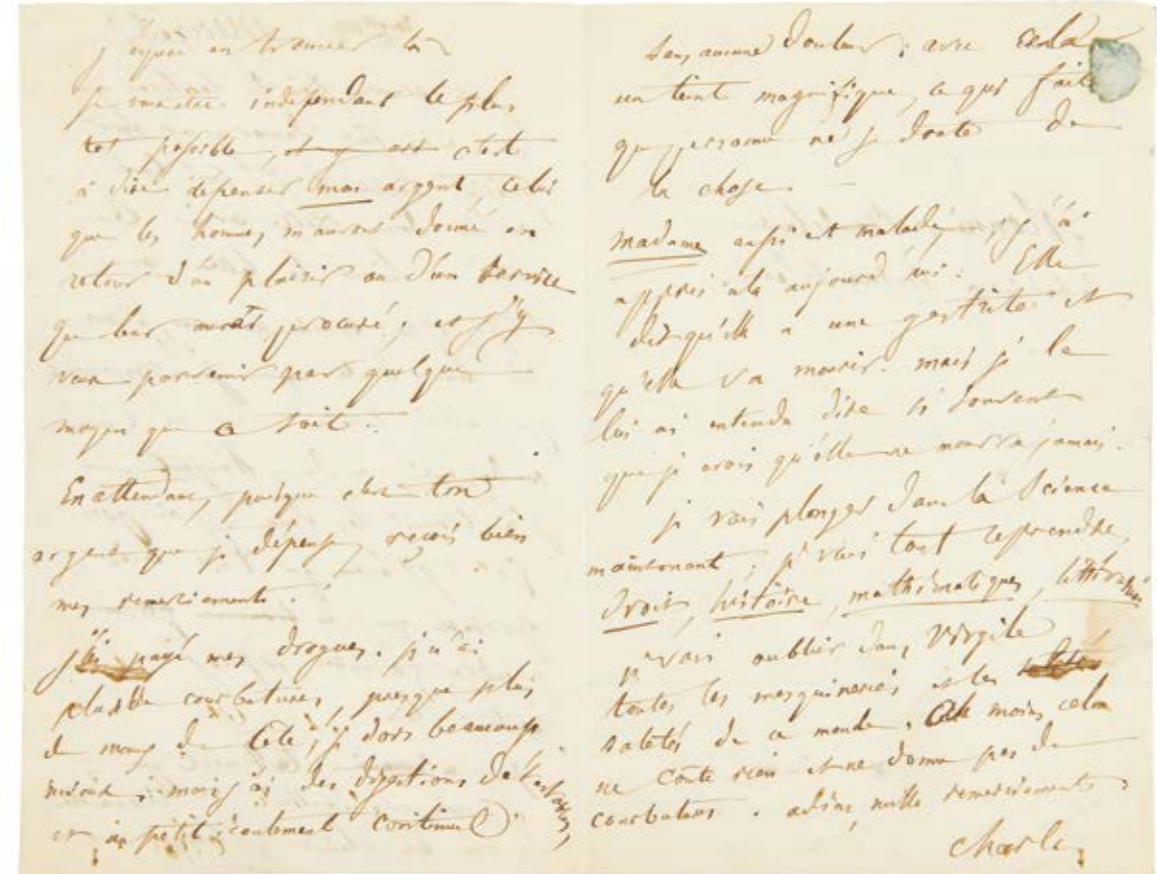 j'espère en trouver là
Je veux être indépendant le plus
tôt possible, c'est
à dire dépenser mon argent, celui
que les hommes, m'auront donné en
retour d'un plaisir ou d'un service
que leur aurai procuré; et j'y
veux parvenir par quelque
moyen que ce soit.
En attendant, puisque c'est ton
argent que je dépense, reçois bien
mes remerciements.
j'ai payé mes drogues. je n'ai
plus de courbatures, presque plus
de maux de tête, je dors beaucoup
mieux; mais j'ai des digestions détestables,
et un petit écoulement continuel
sans aucune douleur; avec cela
un teint magnifique, ce qui fait
que personne ne se doute de
la chose. —
Madame aussi est malade, j'ai
appris cela aujourd'hui. Elle
dit qu'elle a une gastrite et
qu'elle va mourir. mais je le
lui ai entendu dire si souvent
que je crois qu'elle ne mourra jamais.
je vais plonger dans la Science
maintenant. je vais tout reprendre,
Droit, histoire, mathématiques, littérature
je vais oublier dans Virgile
toutes les mesquineries et les
saletés de ce monde. Au moins cela
ne coûte rien et ne donne pas de
courbatures. adieu, mille remerciements,
Charles